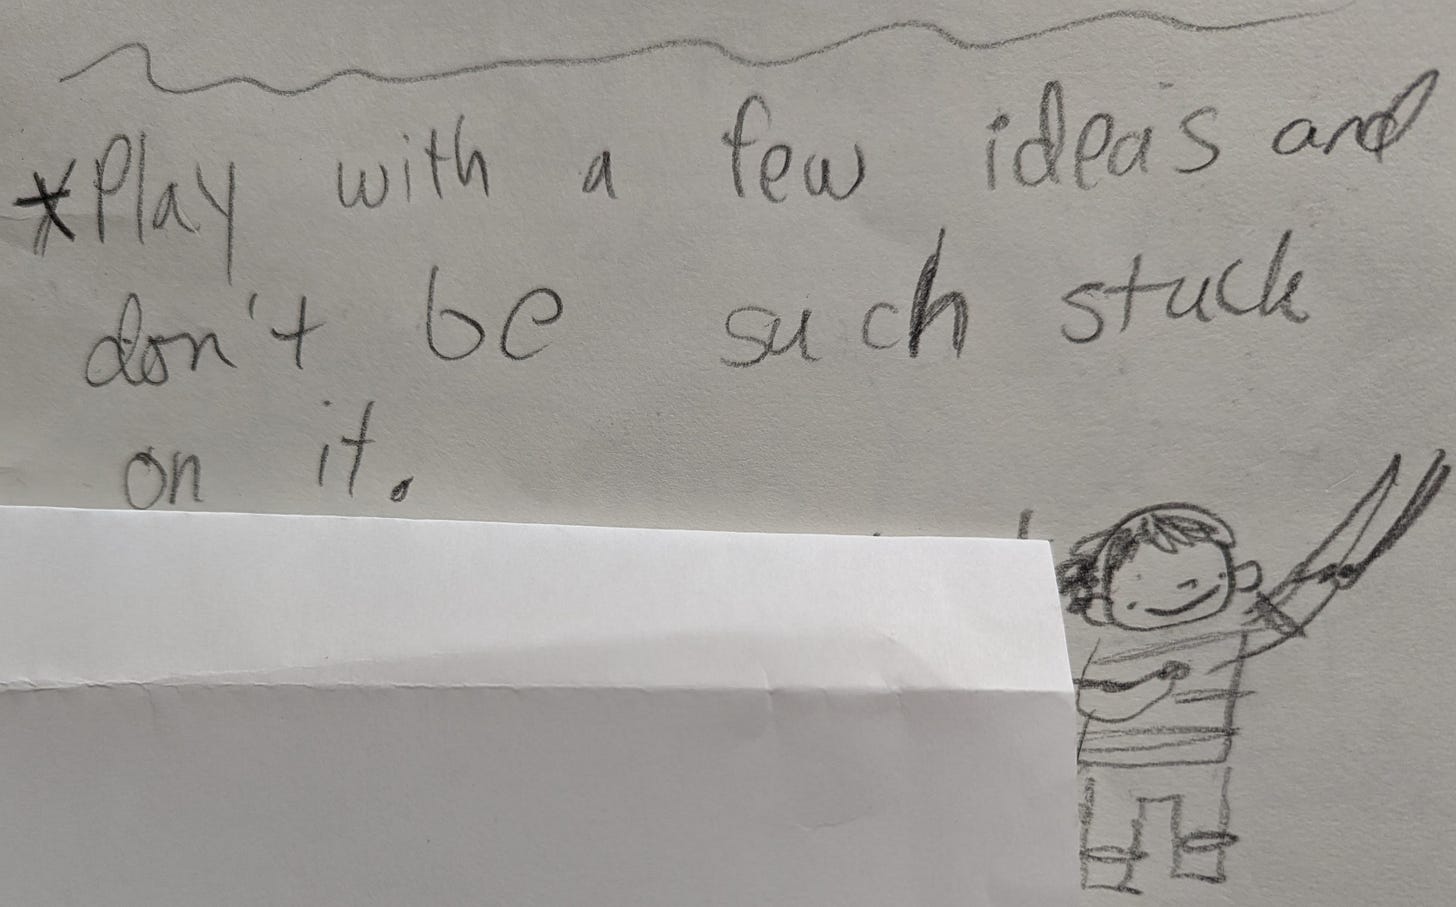 *Play with a few idea's and
don't be such stuck
on it.